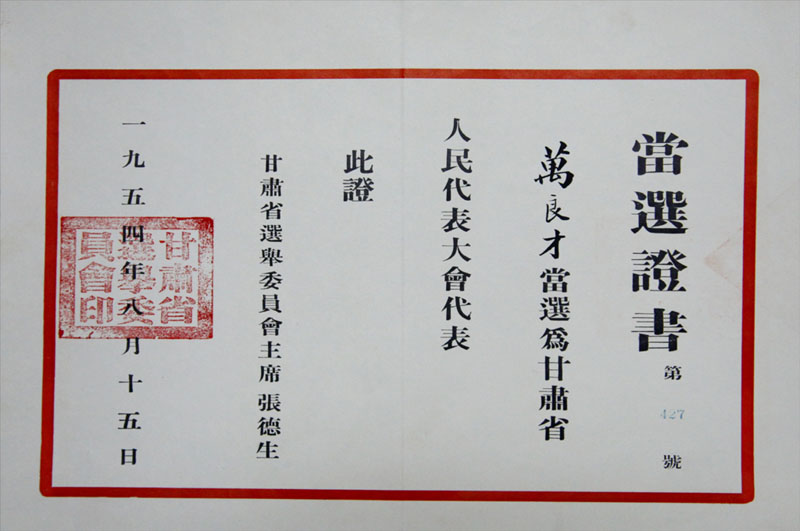 當選證書
第427號
萬良才當選爲甘肅省
人民代表大會代表
此證
甘肅省選舉委員會主席張德生
一九五四年八月十五日
甘肅省選舉委員會印